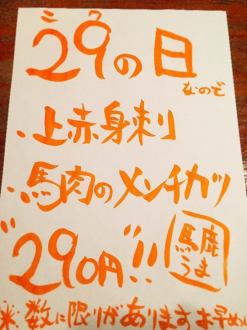 ニク
29の日
なので
・上赤身刺
・馬肉のメンチカツ
"290円"!!
馬鹿うま
※数に限りがありますお早め